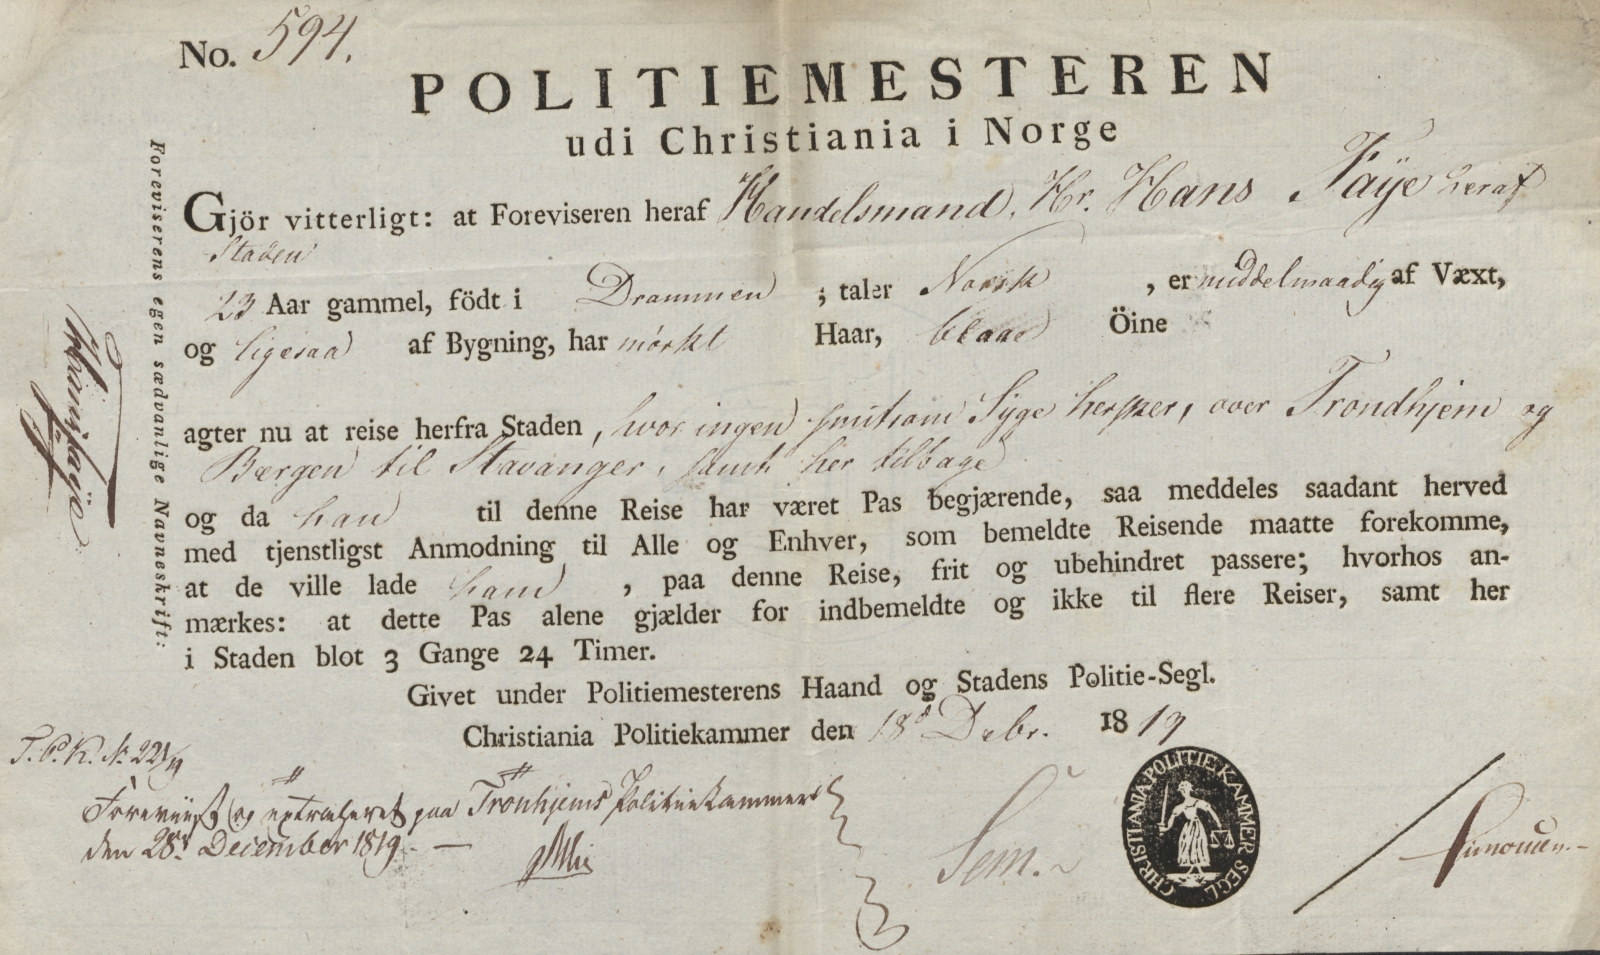 No. 594.
POLITIEMESTEREN
udi Christiania i Norge
Gjör vitterligt: at Foreviseren heraf Handelsmand, Hr. Hans Faÿe heraf
Staden
23 Aar gammel, födt i Drammen ; taler Norsk , er middelmaadig af Væxt,
og ligesaa af Bygning, har mørkt Haar, blaae Öine
agter nu at reise herfra Staden, hvor ingen smitsom Syge hersker, over Trondhjem og
Bergen til Stavanger, samt her tilbage
og da han til denne Reise har været Pas begjærende, saa meddeles saadant herved
med tjenstligst Anmodning til Alle og Enhver, som bemeldte Reisende maatte forekomme,
at de ville lade ham , paa denne Reise, frit og ubehindret passere; hvorhos an-
mærkes: at dette Pas alene gjælder for indbemeldte og ikke til flere Reiser, samt her
i Staden blot 3 Gange 24 Timer.
Givet under Politiemesterens Haand og Stadens Politie-Segl.
Christiania Politiekammer den 18d Debr. 1819
Foreviserens egen sædvanlige Navneskrift:
Hans Faÿe
T.P.K. No 221/19
Foreviist og extraheret paa Tronhjems Politiekammer
den 28de December 1819.
Sem.
CHRISTIANIA POLITIE KAMMER SEGL
Simonsen.